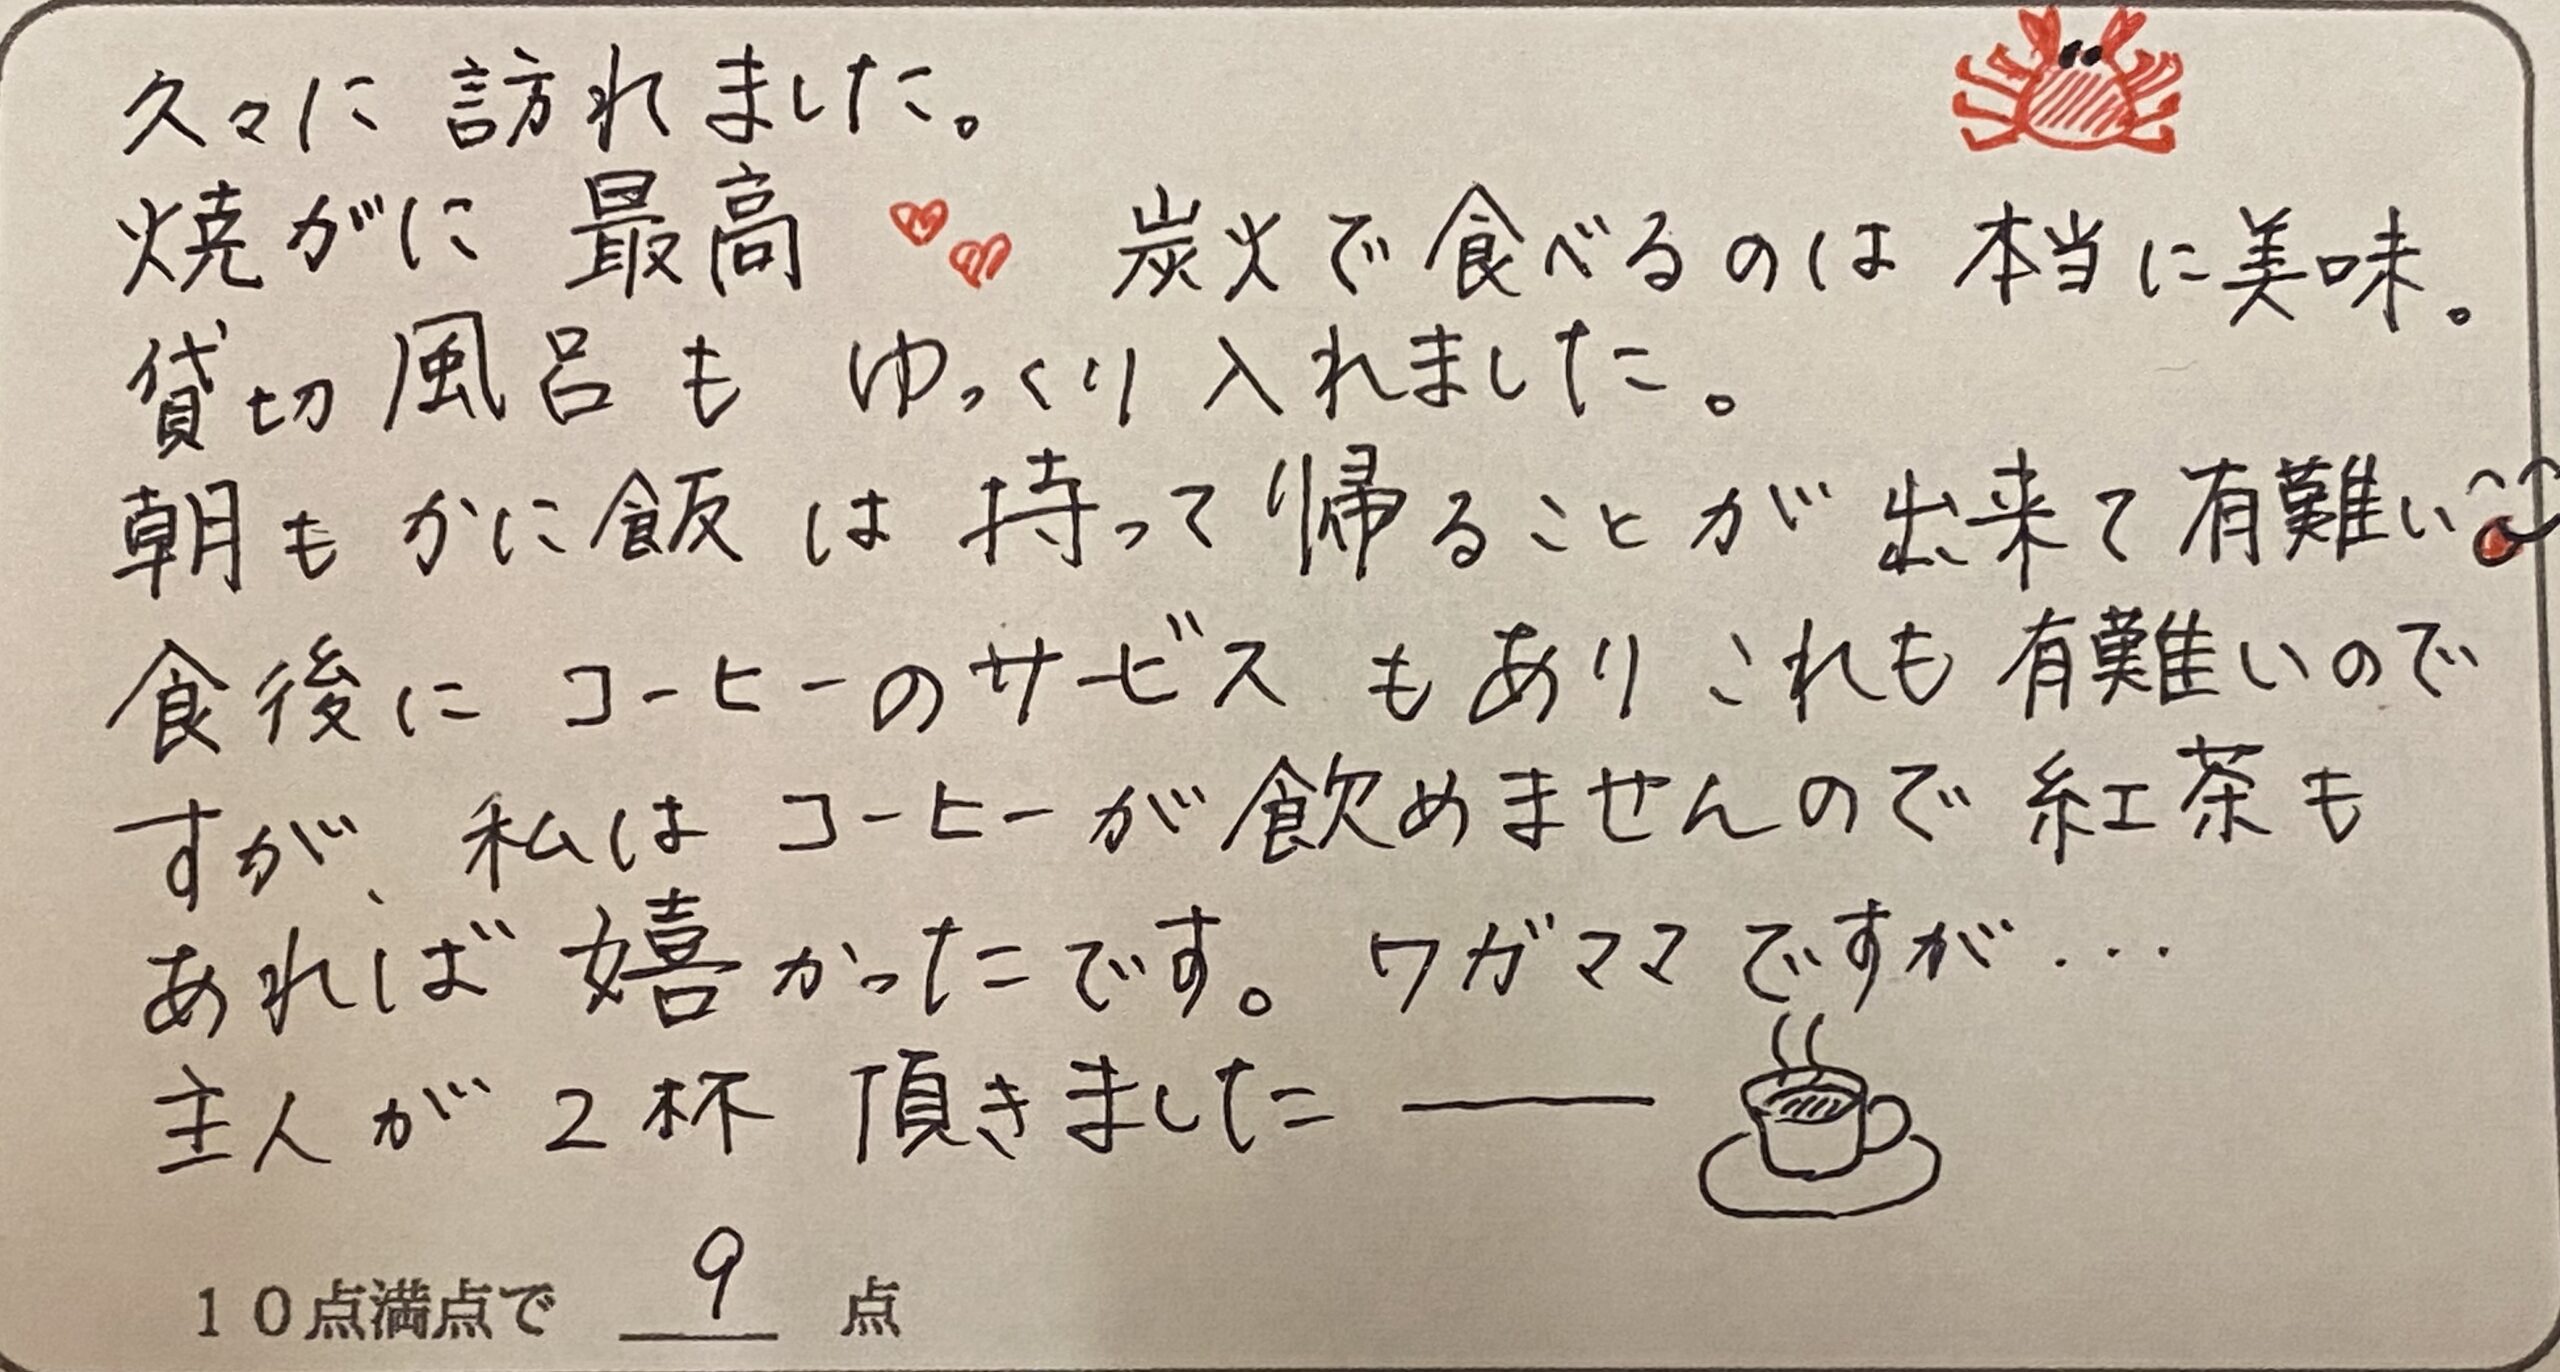 久々に訪れました。
焼がに最高 炭火で食べるのは本当に美味。
貸切風呂もゆっくり入れました。
朝もかに飯は持って帰ることが出来て有難い
食後にコーヒーのサービスもありこれも有難いので
すが、私はコーヒーが飲めませんので紅茶も
あれば嬉かったです。ワガママですが…
主人が2杯頂きました―
10点満点で 9 点